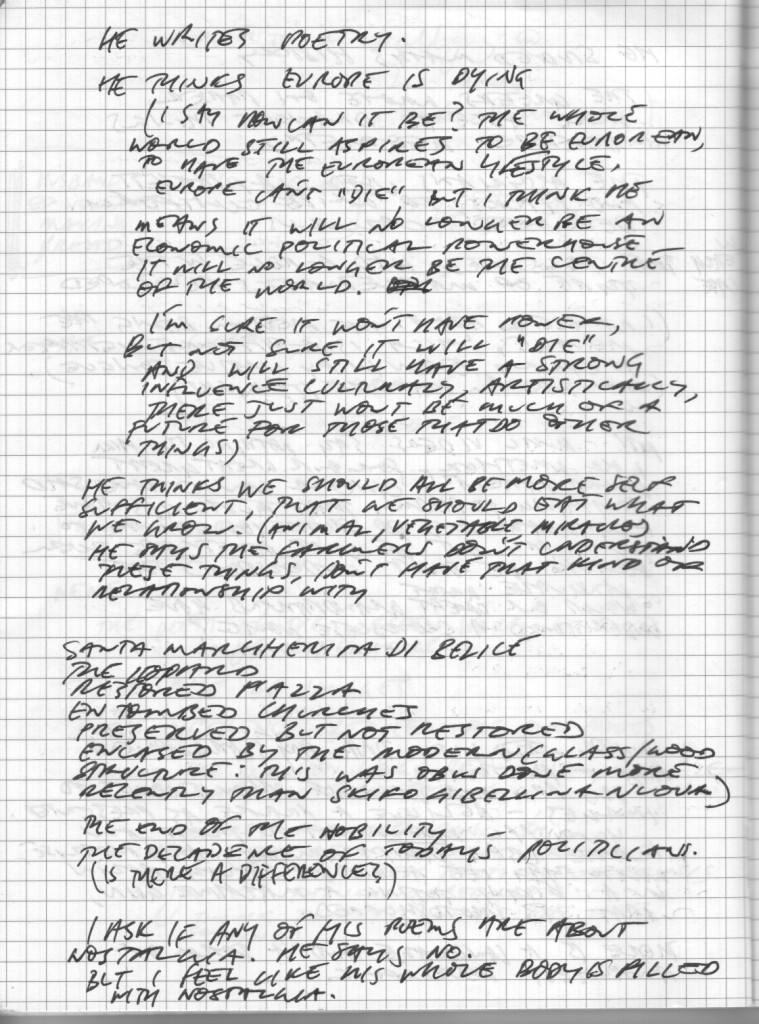 HE WRITES POETRY.
HE THINKS EUROPE IS DYING
(I SAY HOW CAN IT BE? THE WHOLE
WORLD STILL ASPIRES TO BE EUROPEAN,
TO HAVE THE EUROPEAN LIFESTYLE,
EUROPE CAN'T "DIE", BUT I THINK HE
MEANS IT WILL NO LONGER BE AN
ECONOMIC POLITICAL POWERHOUSE
IT WILL NO LONGER BE THE CENTRE
OF THE WORLD.
I'M SURE IT WON'T HAVE POWER,
BUT NOT SURE IT WILL "DIE"
AND WILL STILL HAVE A STRONG
INFLUENCE CULTURALY, ARTISTICALLY,
THERE JUST WON'T BE MUCH OF A
FUTURE FOR THOSE THAT DO OTHER
THINGS)
HE THINKS WE SHOULD ALL BE MORE SELF
SUFFICIENT, THAT WE SHOULD EAT WHAT
WE GROW. (ANIMAL, VEGETABLE, MIRACLE)
HE SAYS THE FARMERS DON'T UNDERSTAND
THESE THINGS, DON'T HAVE THAT KIND OF
RELATIONSHIP WITH
SANTA MARGHERITA DI BELICE
THE LEOPARD
RESTORED PIAZZA
ENTOMBED CHURCHES
PRESERVED BUT NOT RESTORED
ENCASED BY THE MODERN (GLASS/WOOD
STRUCTURE: THIS WAS DONE MORE
RECENTLY THAN GIBELLINA NUOVA)
THE END OF THE NOBILITY
THE DECADENCE OF TODAY'S POLITICIANS.
(IS THERE A DIFFERENCE?)
I ASK IF ANY OF HIS POEMS ARE ABOUT
NOSTALGIA. HE SAYS NO.
BUT I FEEL LIKE HIS WHOLE BODY IS FILLED
WITH NOSTALGIA.